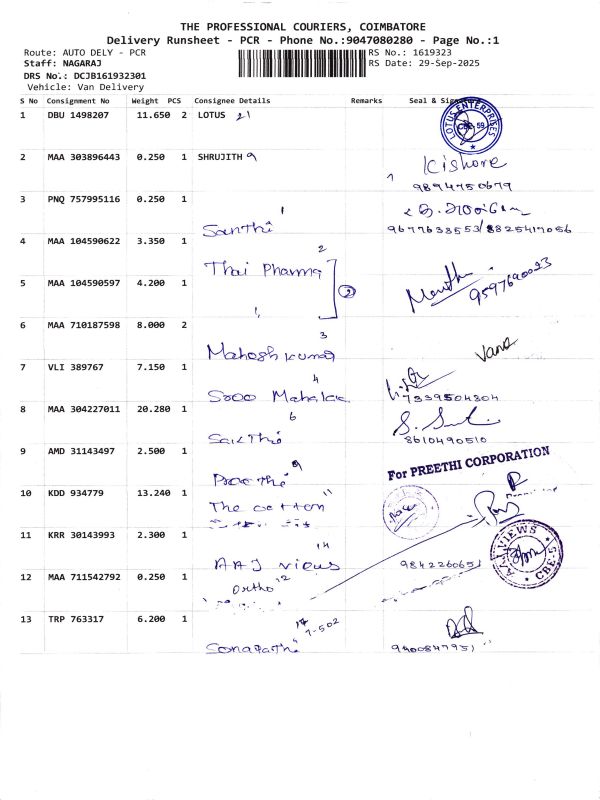 THE PROFESSIONAL COURIERS, COIMBATORE
Delivery Runsheet - PCR - Phone No.:9047080280 - Page No.:1
Route: AUTO DELY - PCR
RS No.: 1619323
Staff: NAGARAJ
RS Date: 29-Sep-2025
DRS No.: DCJB161932301
Vehicle: Van Delivery
S No Consignment No Weight PCS Consignee Details Remarks Seal &
1 DBU 1498207 11.650 2 LOTUS 21
LOTUS ENTERPRISES
2 MAA 303896443 0.250 1 SHRUJITH 9
Kishore
9894750679
3 PNQ 757995116 0.250 1
1
Santhi
9677633553/8825417056
4 MAA 104590622 3.350 1
2
Thai Pharma
5 MAA 104590597 4.200 1
2
9597690023
6 MAA 710187598 8.000 2
3
Mahesh kumar
7 VLI 389767 7.150 1
4
7339504304
8 MAA 304227011 20.280 1
6
Sakthi
8610490510
9 AMD 31143497 2.500 1
9
For PREETHI CORPORATION
10 KDD 934779 13.240 1
11
The cotton
11 KRR 30143993 2.300 1
14
AAJ views
9842260651
AAJ VIEWS CBE-5
12 MAA 711542792 0.250 1
Ortho 12
13 TRP 763317 6.200 1
7-502
9400847951